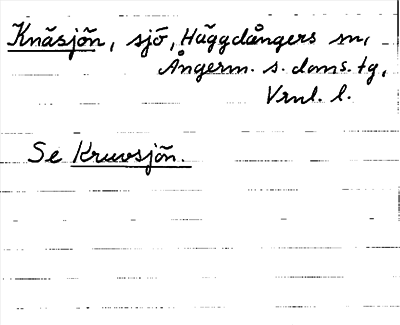 Knäsjön, sjö, Häggdångers sn,
Ångerm. s. doms. tg,
Vrnl. l.
Se Kruvsjön.